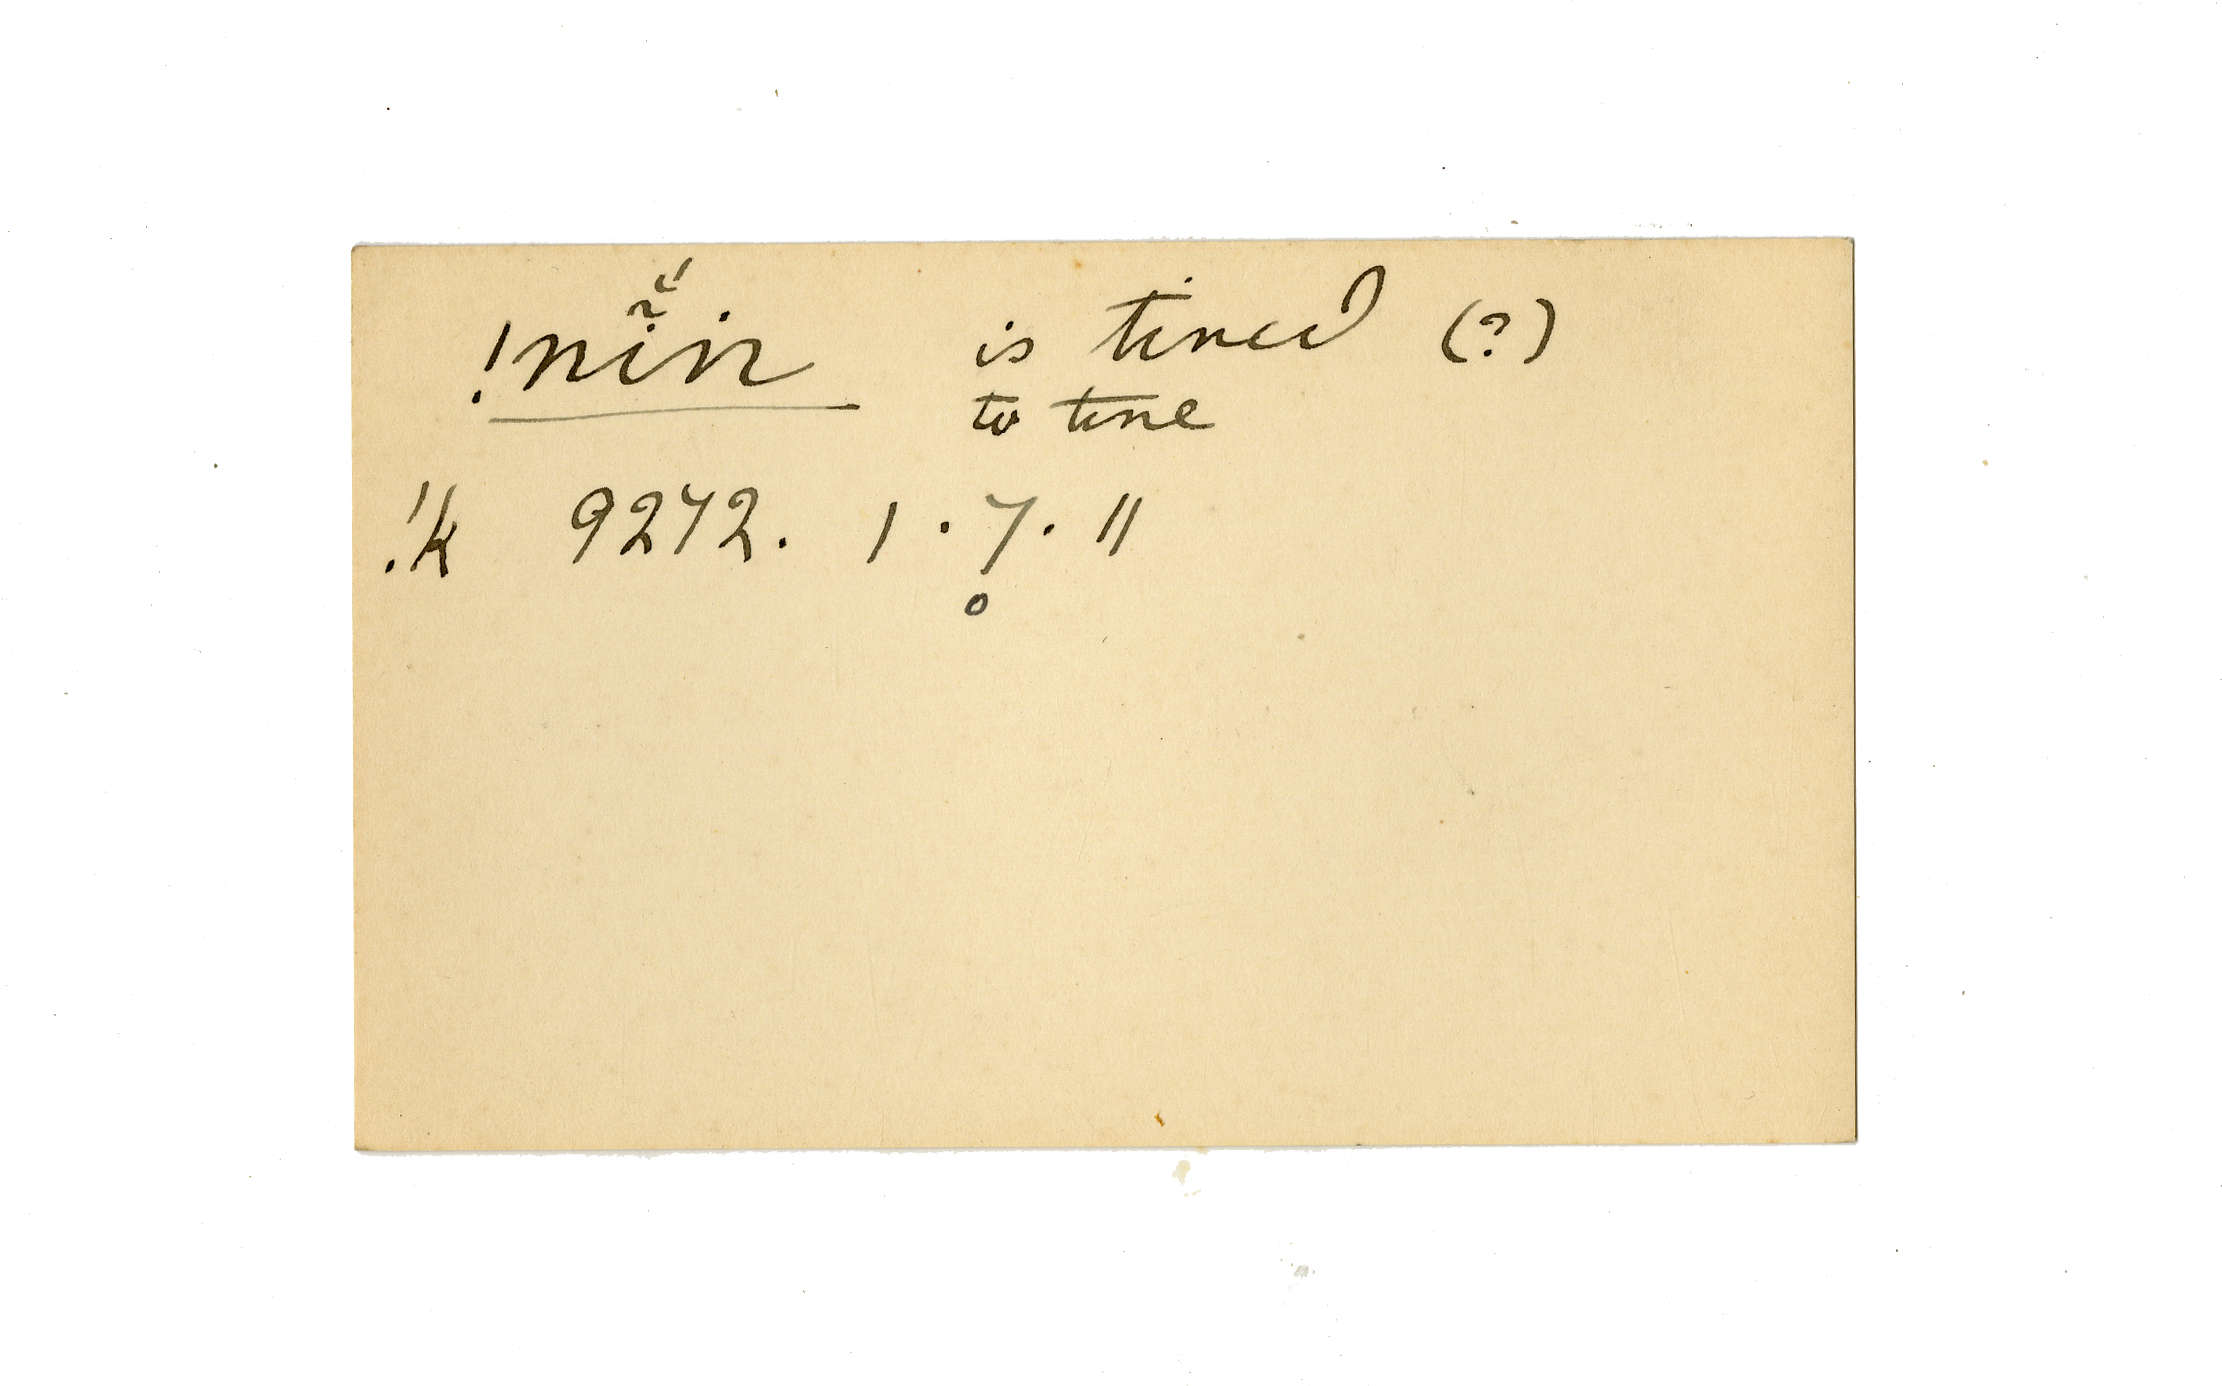 !nĩ̆́n is tired (?)
to tire
!k 9272. 1.7.11
o